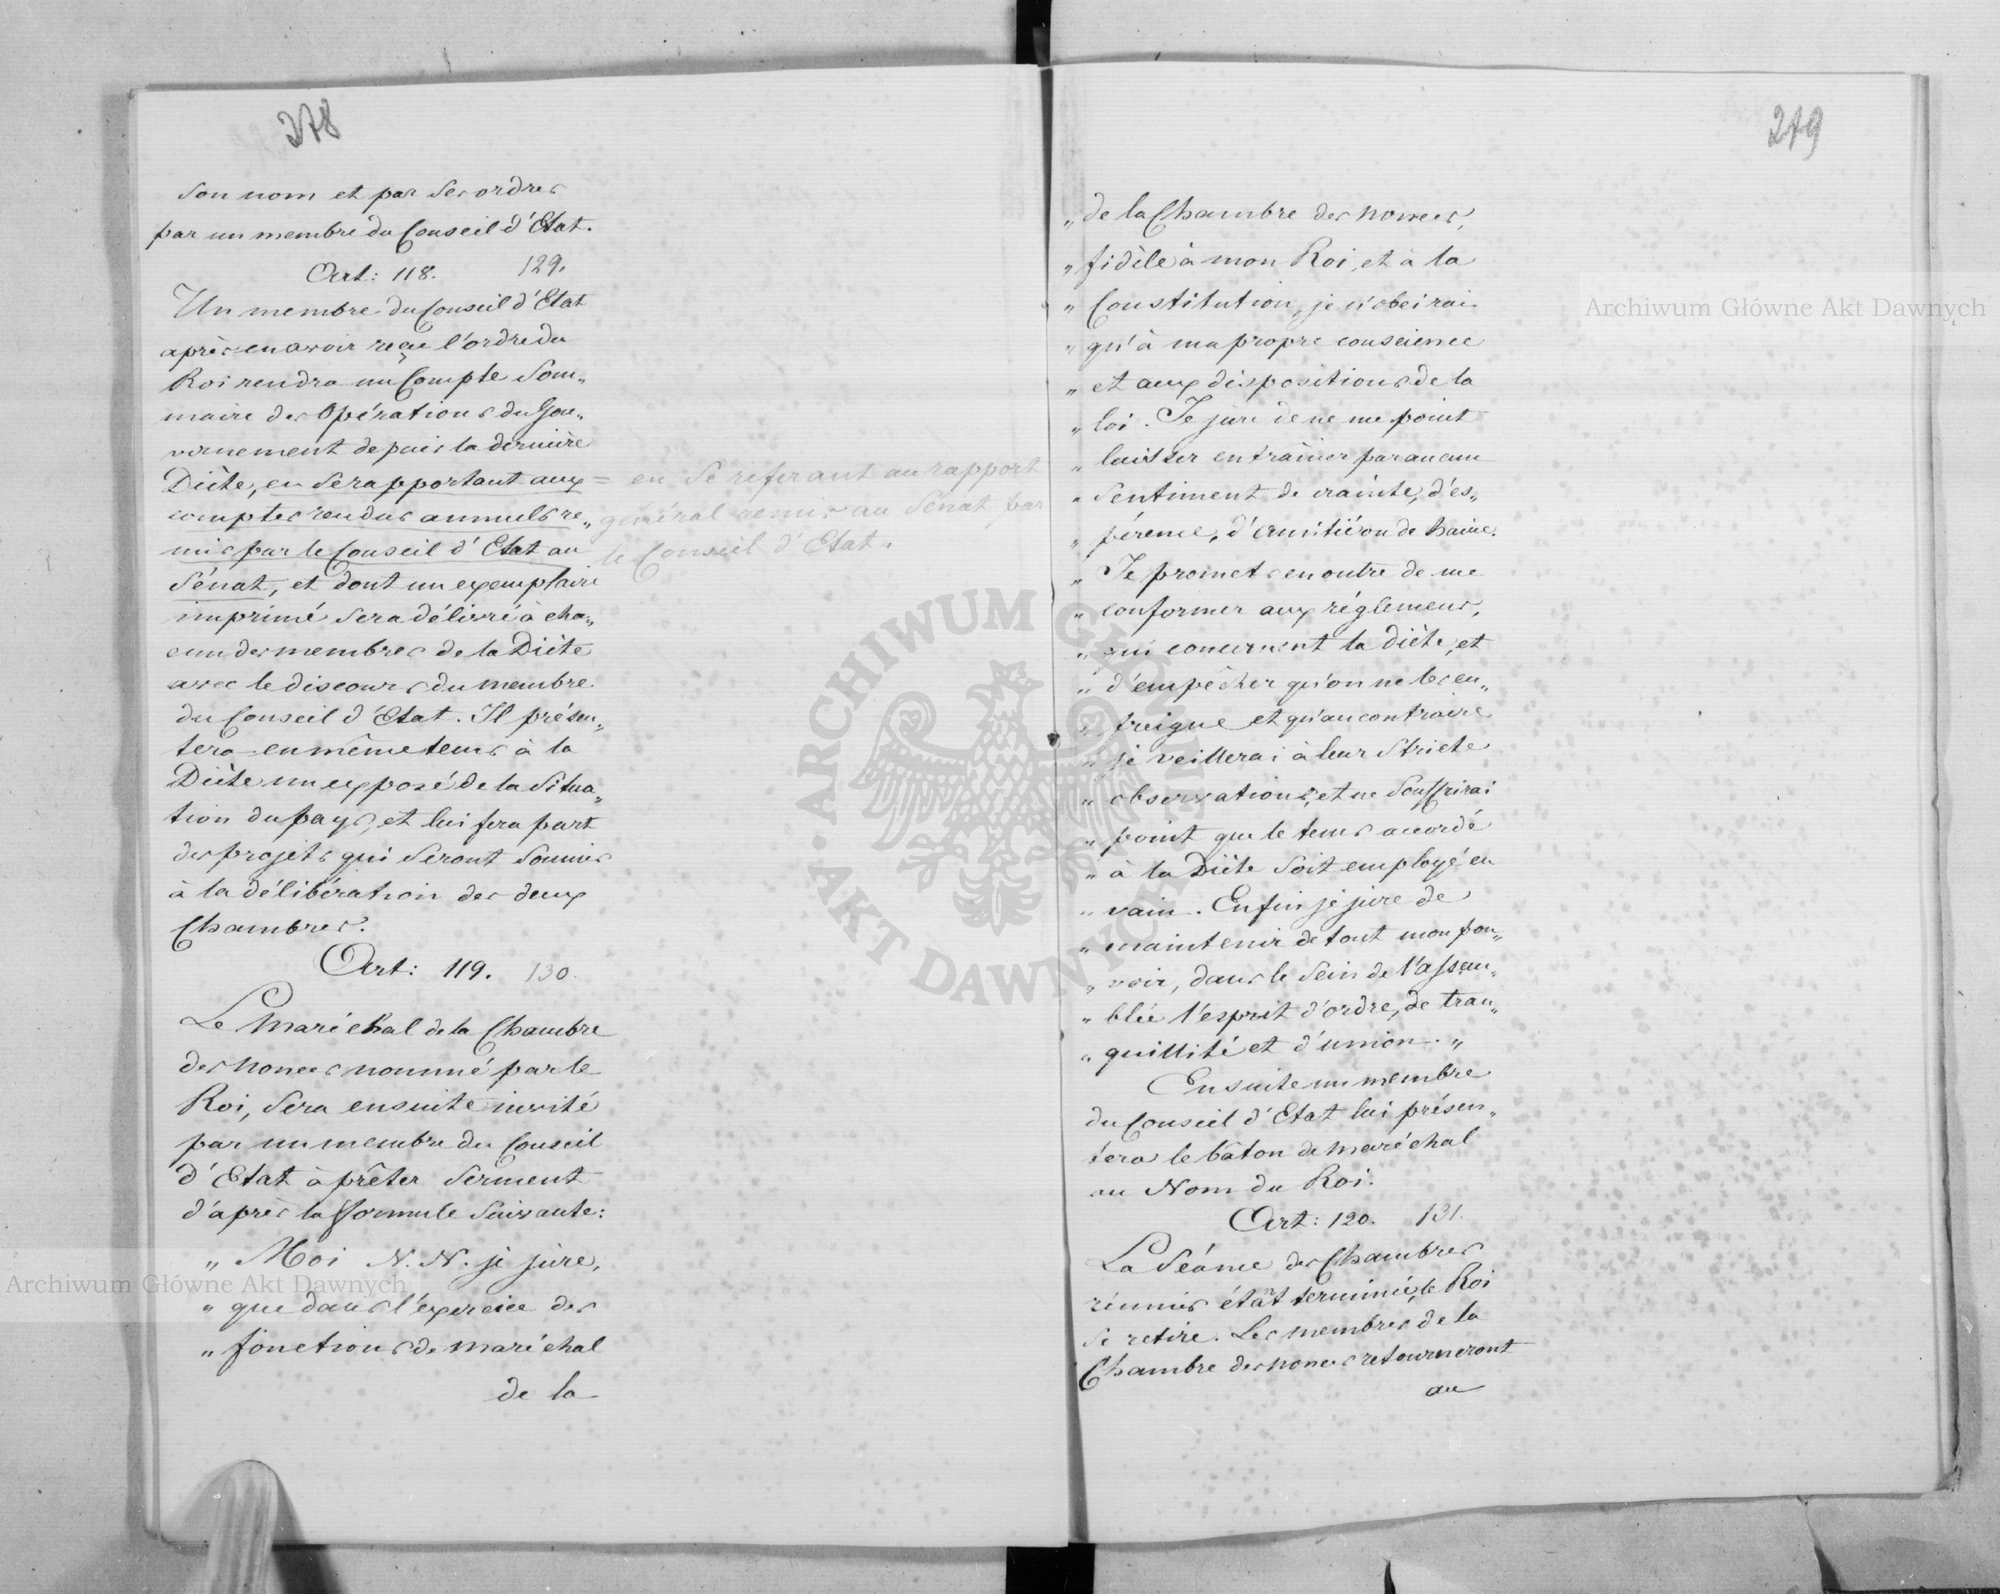 278
son nom et par Ses ordres
par un membre du Conseil d'Etat.
Art: 118. 129.
Un membre du Conseil d'Etat
après en avoir reçu l'ordre du
Roi rendra un Compte Som„
maire des Opérations du Gou„
vernement depuis la dernière
Diète, en Se rapportant aux = en Se referant au rapport
comptes rendus annuels re„ général remis au Sénat par
mis par le Conseil d'Etat au le Conseil d'Etat.
Sénat, et dont un exemplaire
imprimé Sera délivré à cha„
cun des membres de la Diète
avec le discours du membre
du Conseil d'Etat. Il présen„
tera en même tems à la
Diète un exposé de la Situa„
tion du pays, et lui fera part
des projets qui Seront Soumis
à la délibération des deux
Chambres.
Art: 119. 130.
Le Maréchal de la Chambre
des nonces nommé par le
Roi, Sera ensuite invité
par un membre du Conseil
d'Etat à prêter Serment
d'après la formule Suivante:
„ Moi N. N. je jure,
„ que dans l'exercice des
„ fonctions de maréchal
de la
279
„ de la Chambre des nonces,
„ fidèle à mon Roi, et à la
„ Constitution, je n'obeirai
„ qu'à ma propre conscience
„ et aux dispositions de la
„ loi. Je jure de ne me point
„ laisser entraîner par aucun
„ Sentiment de crainte, d'es„
„ pérence, d'amitié ou de haine.
„ Je promets en outre de me
„ conformer aux réglemens,
„ qui concernent la diète, et
„ d'empêcher qu'on ne les en„
„ freigne et qu'au contraire
„ je veillerai à leur Stricte
„ observation, et ne Souffrirai
„ point que le tems accordé
„ à la Diète Soit employé en
„ vain. Enfin je jure de
„ maintenir de tout mon pou„
„ voir, dans le Sein de l'assem„
„ blée l'esprit d'ordre, de tran„
„ quillité et d'union. „
Ensuite un membre
du Conseil d'Etat lui présen„
tera le bâton de maréchal
au Nom du Roi.
Art: 120. 131.
La Séance des Chambres
réunies étant terminée, le Roi
Se retire. Les membres de la
Chambre des nonces retourneront
au
Archiwum Główne Akt Dawnych
Archiwum Główne Akt Dawnych
ARCHIWUM GŁÓWNE AKT DAWNYCH